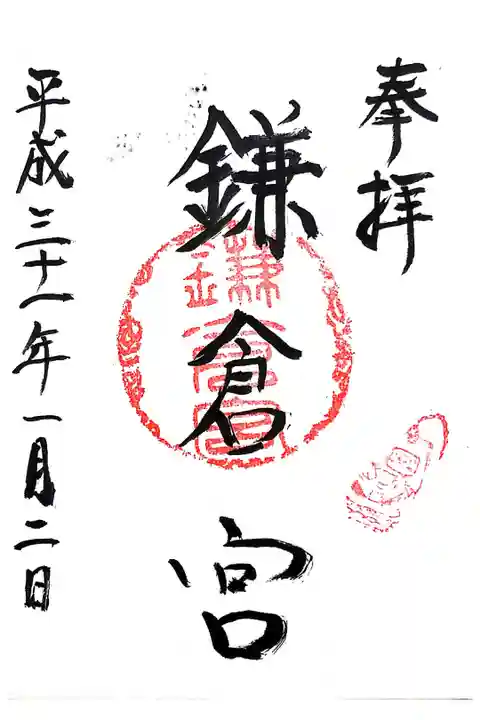 奉拝
鎌倉宮
鎌倉宮
平成三十一年一月二日